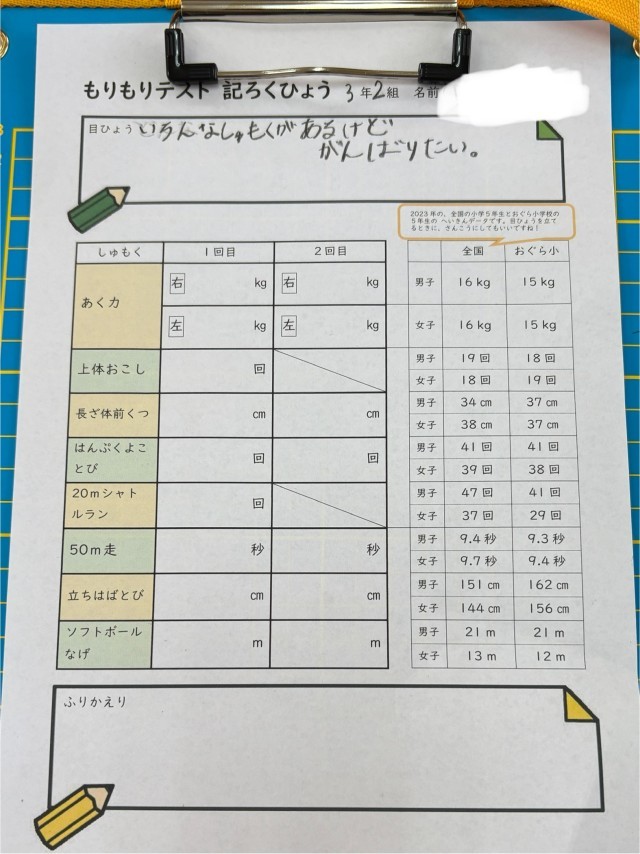 もりもりテスト 記ろくひょう 3年2組 名前
目ひょう いろんなしゅもくがあるけど
がんばりたい。
2023年の、全国の小学5年生とおぐら小学校の
5年生の へいきんデータです。目ひょうを立て
るときに、さんこうにしてもいいですね!
しゅもく 1回目 2回目 全国 おぐら小
あく力 右 kg 右 kg 男子 16 kg 15 kg
左 kg 左 kg 女子 16 kg 15 kg
上体おこし 回 男子 19 回 18 回
女子 18 回 19 回
長ざ体前くつ cm cm 男子 34 cm 37 cm
女子 38 cm 37 cm
はんぷくよこ
とび 回 回 男子 41 回 41 回
女子 39 回 38 回
20mシャト
ルラン 回 男子 47 回 41 回
女子 37 回 29 回
50m走 秒 秒 男子 9.4 秒 9.3 秒
女子 9.7 秒 9.4 秒
立ちはばとび cm cm 男子 151 cm 162 cm
女子 144 cm 156 cm
ソフトボール
なげ m m 男子 21 m 21 m
女子 13 m 12 m
ふりかえり